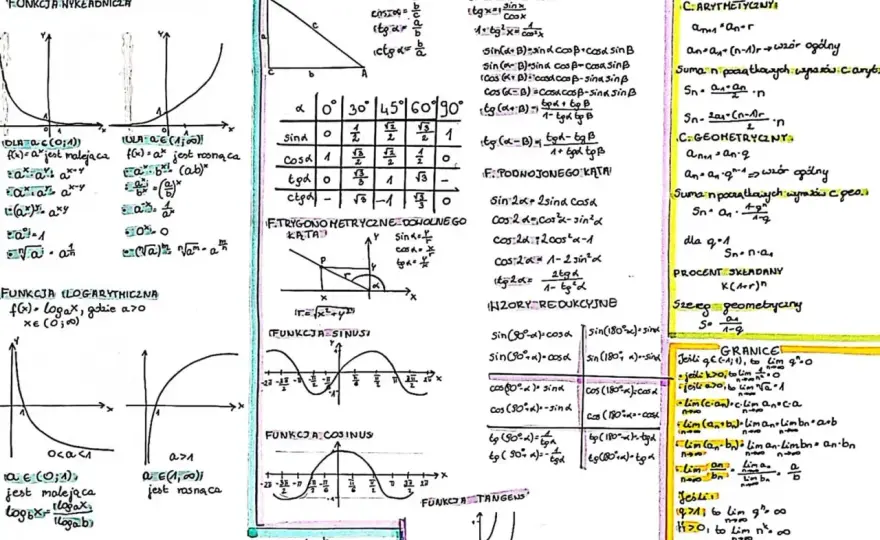 FUNKCJA WYKŁADNICZA
y
y
1
1
x
x
DLA a∈(0;1)
f(x)=aˣ jest malejąca
DLA a∈(1;∞)
f(x)=aˣ jest rosnąca
a⁰=1
FUNKCJA LOGARYTMICZNA
f(x)=logₐx, gdzie a>0
x∈(0;∞)
1
1
x
x
0<a<1
a>1
a∈(0;1)
jest malejąca
a∈(1,∞)
jest rosnąca
log_b x = logₐx / logₐb
a
c
C
b
A
cos α = b/c
tg α = a/b
ctg α = b/a
α | 0° | 30° | 45° | 60° | 90°
sin α | 0 | 1/2 | √2/2 | √3/2 | 1
cos α | 1 | √3/2 | √2/2 | 1/2 | 0
tg α | 0 | √3/3 | 1 | √3 | –
ctg α | – | √3 | 1 | √3/3 | 0
F. TRYGONOMETRYCZNE DOWOLNEGO
KĄTA
sin α = y/r
cos α = x/r
tg α = y/x
P
r
α
y
x
x
r=√x²+y²
FUNKCJA SINUS
FUNKCJA COSINUS
FUNKCJA TANGENS
tg x = sin x / cos x
1+tg²x = 1/cos²x
sin(α+β)=sin α cos β+cos α sin β
sin(α-β)=sin α cos β-cos α sin β
cos(α+β)=cos α cos β-sin α sin β
tg(α+β)= (tg α+tg β)/(1-tg α tg β)
tg(α-β)= (tg α-tg β)/(1+tg α tg β)
F. PODWOJONEGO KĄTA
sin 2α=2sin α cos α
cos 2α=cos²α-sin²α
cos 2α=2cos²α-1
cos 2α=1-2sin²α
tg 2α= 2tg α/(1-tg²α)
WZORY REDUKCYJNE
sin(90°-α)=cos α | sin(180°-α)=sin α
sin(90°+α)=cos α | sin(180°+α)=-sin α
cos(90°-α)=sin α | cos(180°-α)=-cos α
cos(90°+α)=-sin α | cos(180°+α)=-cos α
tg(90°-α)=1/tg α | tg(180°-α)=-tg α
tg(90°+α)=-1/tg α | tg(180°+α)=tg α
C. ARYTMETYCZNY
aₙ₊₁=aₙ+r
aₙ=a₁+(n-1)r → wzór ogólny
Suma n początkowych wyrazów c. aryt.
Sₙ= (a₁+aₙ)/2 · n
Sₙ= (2a₁+(n-1)r)/2 · n
C. GEOMETRYCZNY
aₙ₊₁=aₙ·q
aₙ=a₁·qⁿ⁻¹ → wzór ogólny
Suma n początkowych wyrazów c. geo.
Sₙ=a₁· (1-qⁿ)/(1-q)
dla q=1
Sₙ=n·a₁
PROCENT SKŁADANY
K(1+r)ⁿ
Szereg geometryczny
S= a₁/(1-q)
GRANICE
Jeśli q∈(-1;1), to lim qⁿ=0
n→∞
jeśli k>0, to lim 1/nᵏ=0
jeśli a>0, to lim ⁿ√a=1
lim(c·aₙ)=c·lim aₙ=c·a
lim(aₙ+bₙ)=lim aₙ+lim bₙ=a+b
lim(aₙ·bₙ)=lim aₙ·lim bₙ=a·b
lim aₙ/bₙ = lim aₙ/lim bₙ = a/b
Jeśli:
q>1, to lim qⁿ=∞
k>0, to lim nᵏ=∞